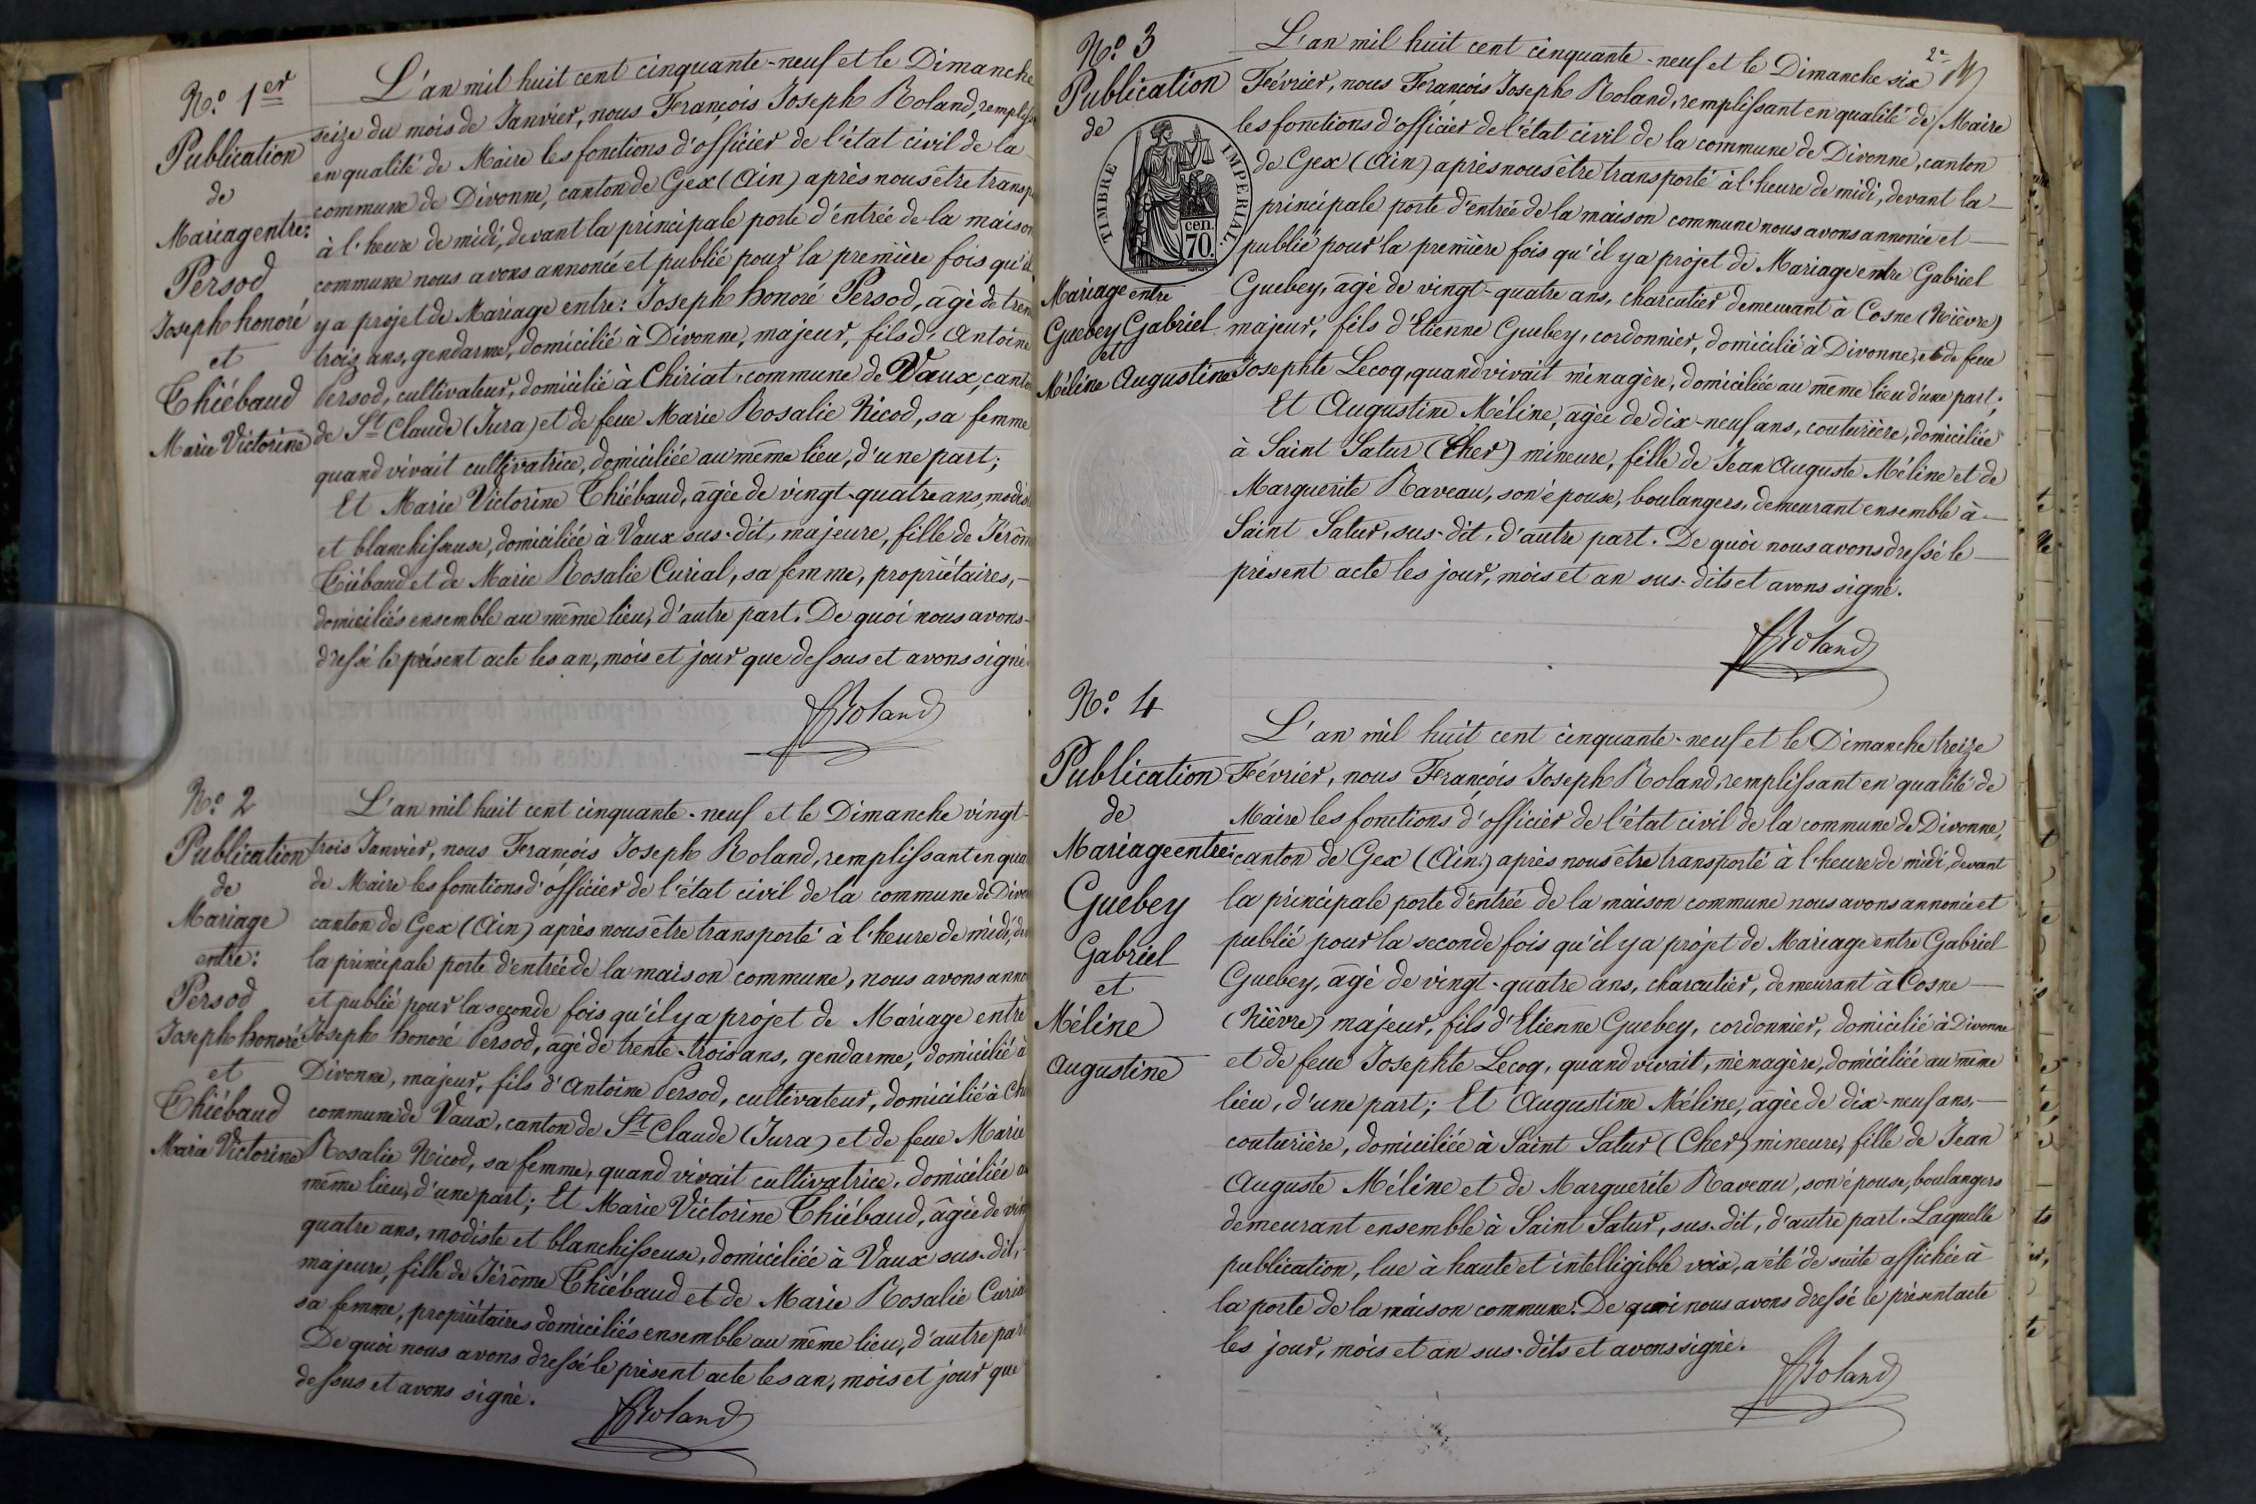 N.º 1er
Publication
de
Mariag entre:
Persod
Joseph honoré
et
Thiébaud
Marie Victorine
L'an mil huit cent cinquante-neuf et le Dimanche
seize du mois de Janvier, nous François Joseph Roland, rempliss
en qualité de Maire les fonctions d'officier de l'état civil de la
commune de Divonne, canton de Gex (Ain) après nous être transp
à l'heure de midi, devant la principale porte d'entrée de la maison
commune nous avons annoncé et publié pour la première fois qu'il
y a projet de Mariage entre: Joseph honoré Persod, âgé de tren
trois ans, gendarme, domicilié à Divonne, majeur, fils d'Antoine
Persod, cultivateur, domicilié à Chiriat, commune de Vaux, canto
de St Claude (Jura) et de feue Marie Rosalie Nicod, sa femme
quand vivait cultivatrice, domiciliée au même lieu, d'une part;
Et Marie Victorine Thiébaud, âgée de vingt-quatre ans, modis
et blanchisseuse, domiciliée à Vaux sus-dit, majeure, fille de Jérôm
Tiébaud et de Marie Rosalie Curial, sa femme, propriétaires,
domiciliés ensemble au même lieu, d'autre part. De quoi nous avons
dressé le présent acte les an, mois et jour que dessus et avons signé
Roland
N.º 2
Publication
de
Mariage
entre:
Persod
Joseph honoré
et
Thiébaud
Marie Victorine
L'an mil huit cent cinquante-neuf et le Dimanche vingt-
trois Janvier, nous François Joseph Roland, remplissant en qua
de Maire les fonctions d'officier de l'état civil de la commune de Divon
canton de Gex (Ain) après nous être transporté à l'heure de midi, de
la principale porte d'entrée de la maison commune, nous avons anno
et publié pour la seconde fois qu'il y a projet de Mariage entre
Joseph honoré Persod, âgé de trente-trois ans, gendarme, domicilié à
Divonne, majeur, fils d'Antoine Persod, cultivateur, domicilié à Chi
commune de Vaux, canton de St Claude (Jura) et de feue Marie
Rosalie Nicod, sa femme, quand vivait cultivatrice, domiciliée a
même lieu, d'une part; Et Marie Victorine Thiébaud, âgée de vin
quatre ans, modiste et blanchisseuse, domiciliée à Vaux sus-dit,
majeure, fille de Jérôme Thiébaud et de Marie Rosalie Curia
sa femme, propriétaires domiciliés ensemble au même lieu, d'autre par
De quoi nous avons dressé le présent acte les an, mois et jour que
dessus et avons signé.
Roland
2e
N.º 3
Publication
de
TIMBRE IMPERIAL.
cen.
70.
Mariage entre
Guebey Gabriel
et
Méline Augustine
L'an mil huit cent cinquante-neuf et le Dimanche six
Février, nous François Joseph Roland, remplissant en qualité de Maire
les fonctions d'officier de l'état civil de la commune de Divonne, canton
de Gex (Ain) après nous être transporté à l'heure de midi, devant la
principale porte d'entrée de la maison commune nous avons annoncé et
publié pour la première fois qu'il y a projet de Mariage entre Gabriel
Guebey, âgé de vingt-quatre ans, charcutier demeurant à Cosne (Nièvre)
majeur, fils d'Etienne Guebey, cordonnier, domicilié à Divonne, et de feue
Josephte Lecoq, quand vivait ménagère, domiciliée au même lieu d'une part;
Et Augustine Méline, âgée de dix-neuf ans, couturière, domiciliée
à Saint Satur (Cher) mineure, fille de Jean Auguste Méline et de
Marguerite Raveau, son épouse, boulangers, demeurant ensemble à
Saint Satur, sus-dit, d'autre part. De quoi nous avons dressé le
présent acte les jour, mois et an sus-dits et avons signé.
Roland
N.º 4
Publication
de
Mariage entre:
Guebey
Gabriel
et
Méline
Augustine
L'an mil huit cent cinquante-neuf et le Dimanche treize
Février, nous François Joseph Roland, remplissant en qualité de
Maire les fonctions d'officier de l'état civil de la commune de Divonne,
canton de Gex (Ain) après nous être transporté à l'heure de midi, devant
la principale porte d'entrée de la maison commune nous avons annoncé et
publié pour la seconde fois qu'il y a projet de Mariage entre Gabriel
Guebey, âgé de vingt-quatre ans, charcutier, demeurant à Cosne
(Nièvre) majeur, fils d'Etienne Guebey, cordonnier, domicilié à Divonne
et de feue Josephte Lecoq, quand vivait, ménagère, domiciliée au même
lieu, d'une part; Et Augustine Méline, âgée de dix-neuf ans,
couturière, domiciliée à Saint Satur (Cher) mineure, fille de Jean
Auguste Méline et de Marguerite Raveau, son épouse, boulangers
demeurant ensemble à Saint Satur, sus-dit, d'autre part. Laquelle
publication, lue à haute et intelligible voix, a été de suite affichée à
la porte de la maison commune. De quoi nous avons dressé le présent acte
les jour, mois et an sus-dits et avons signé.
Roland